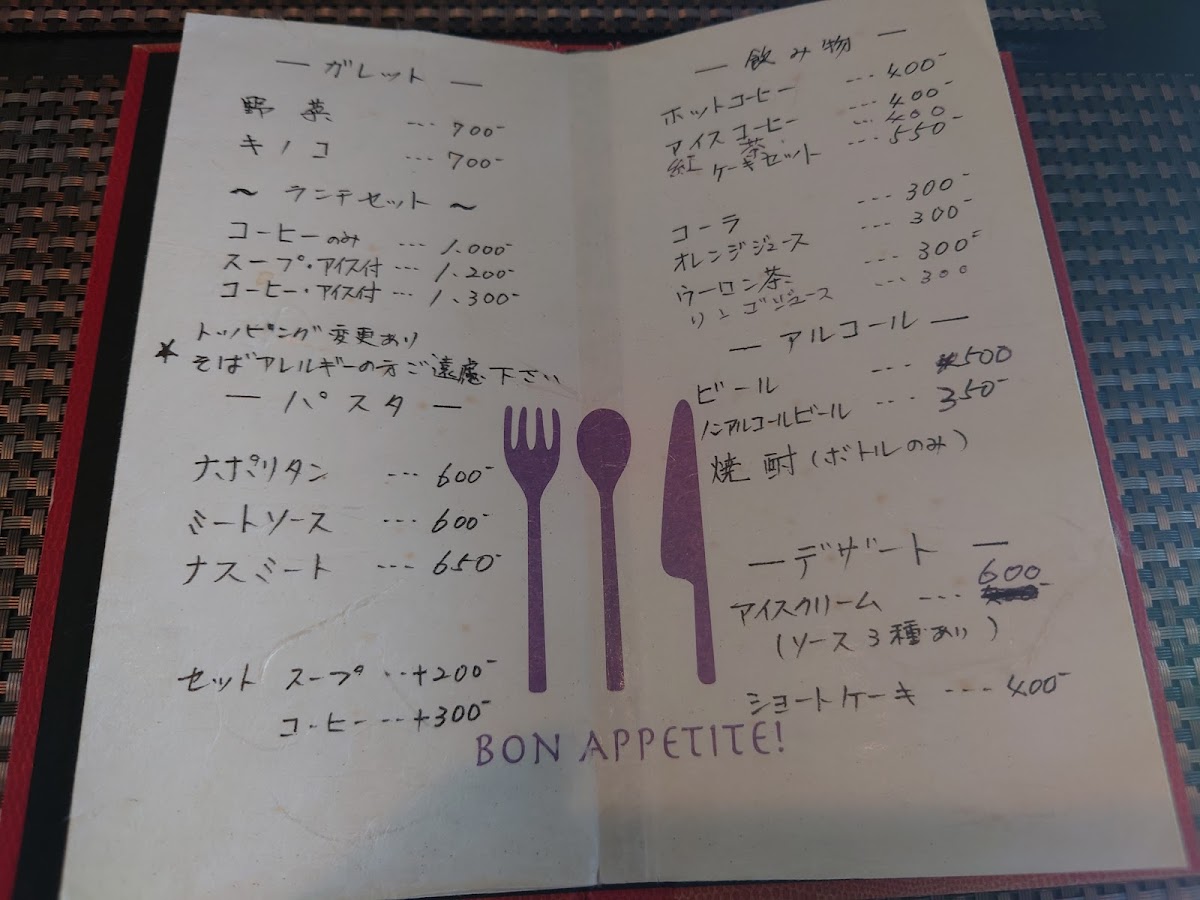 — ガレット —
野菜 --- 700-
キノコ --- 700-
〜 ランチセット 〜
コーヒーのみ --- 1.000-
スープ・アイス付 --- 1.200-
コーヒー・アイス付 --- 1.300-
トッピング変更あり
★ そばアレルギーの方ご遠慮下さい
— パスタ —
ナポリタン --- 600-
ミートソース --- 600-
ナスミート --- 650-
セット スープ --- +200-
コーヒー --- +300-
— 飲み物 —
ホットコーヒー --- 400-
アイスコーヒー --- 400-
紅茶 --- 400
ケーキセット --- 550-
コーラ --- 300-
オレンジジュース --- 300-
ウーロン茶 --- 300-
りんごジュース --- 300
— アルコール —
ビール --- 500
ノンアルコールビール --- 350-
焼酎(ボトルのみ)
— デザート —
アイスクリーム --- 600-
(ソース3種あり)
ショートケーキ --- 400-
BON APPETITE!